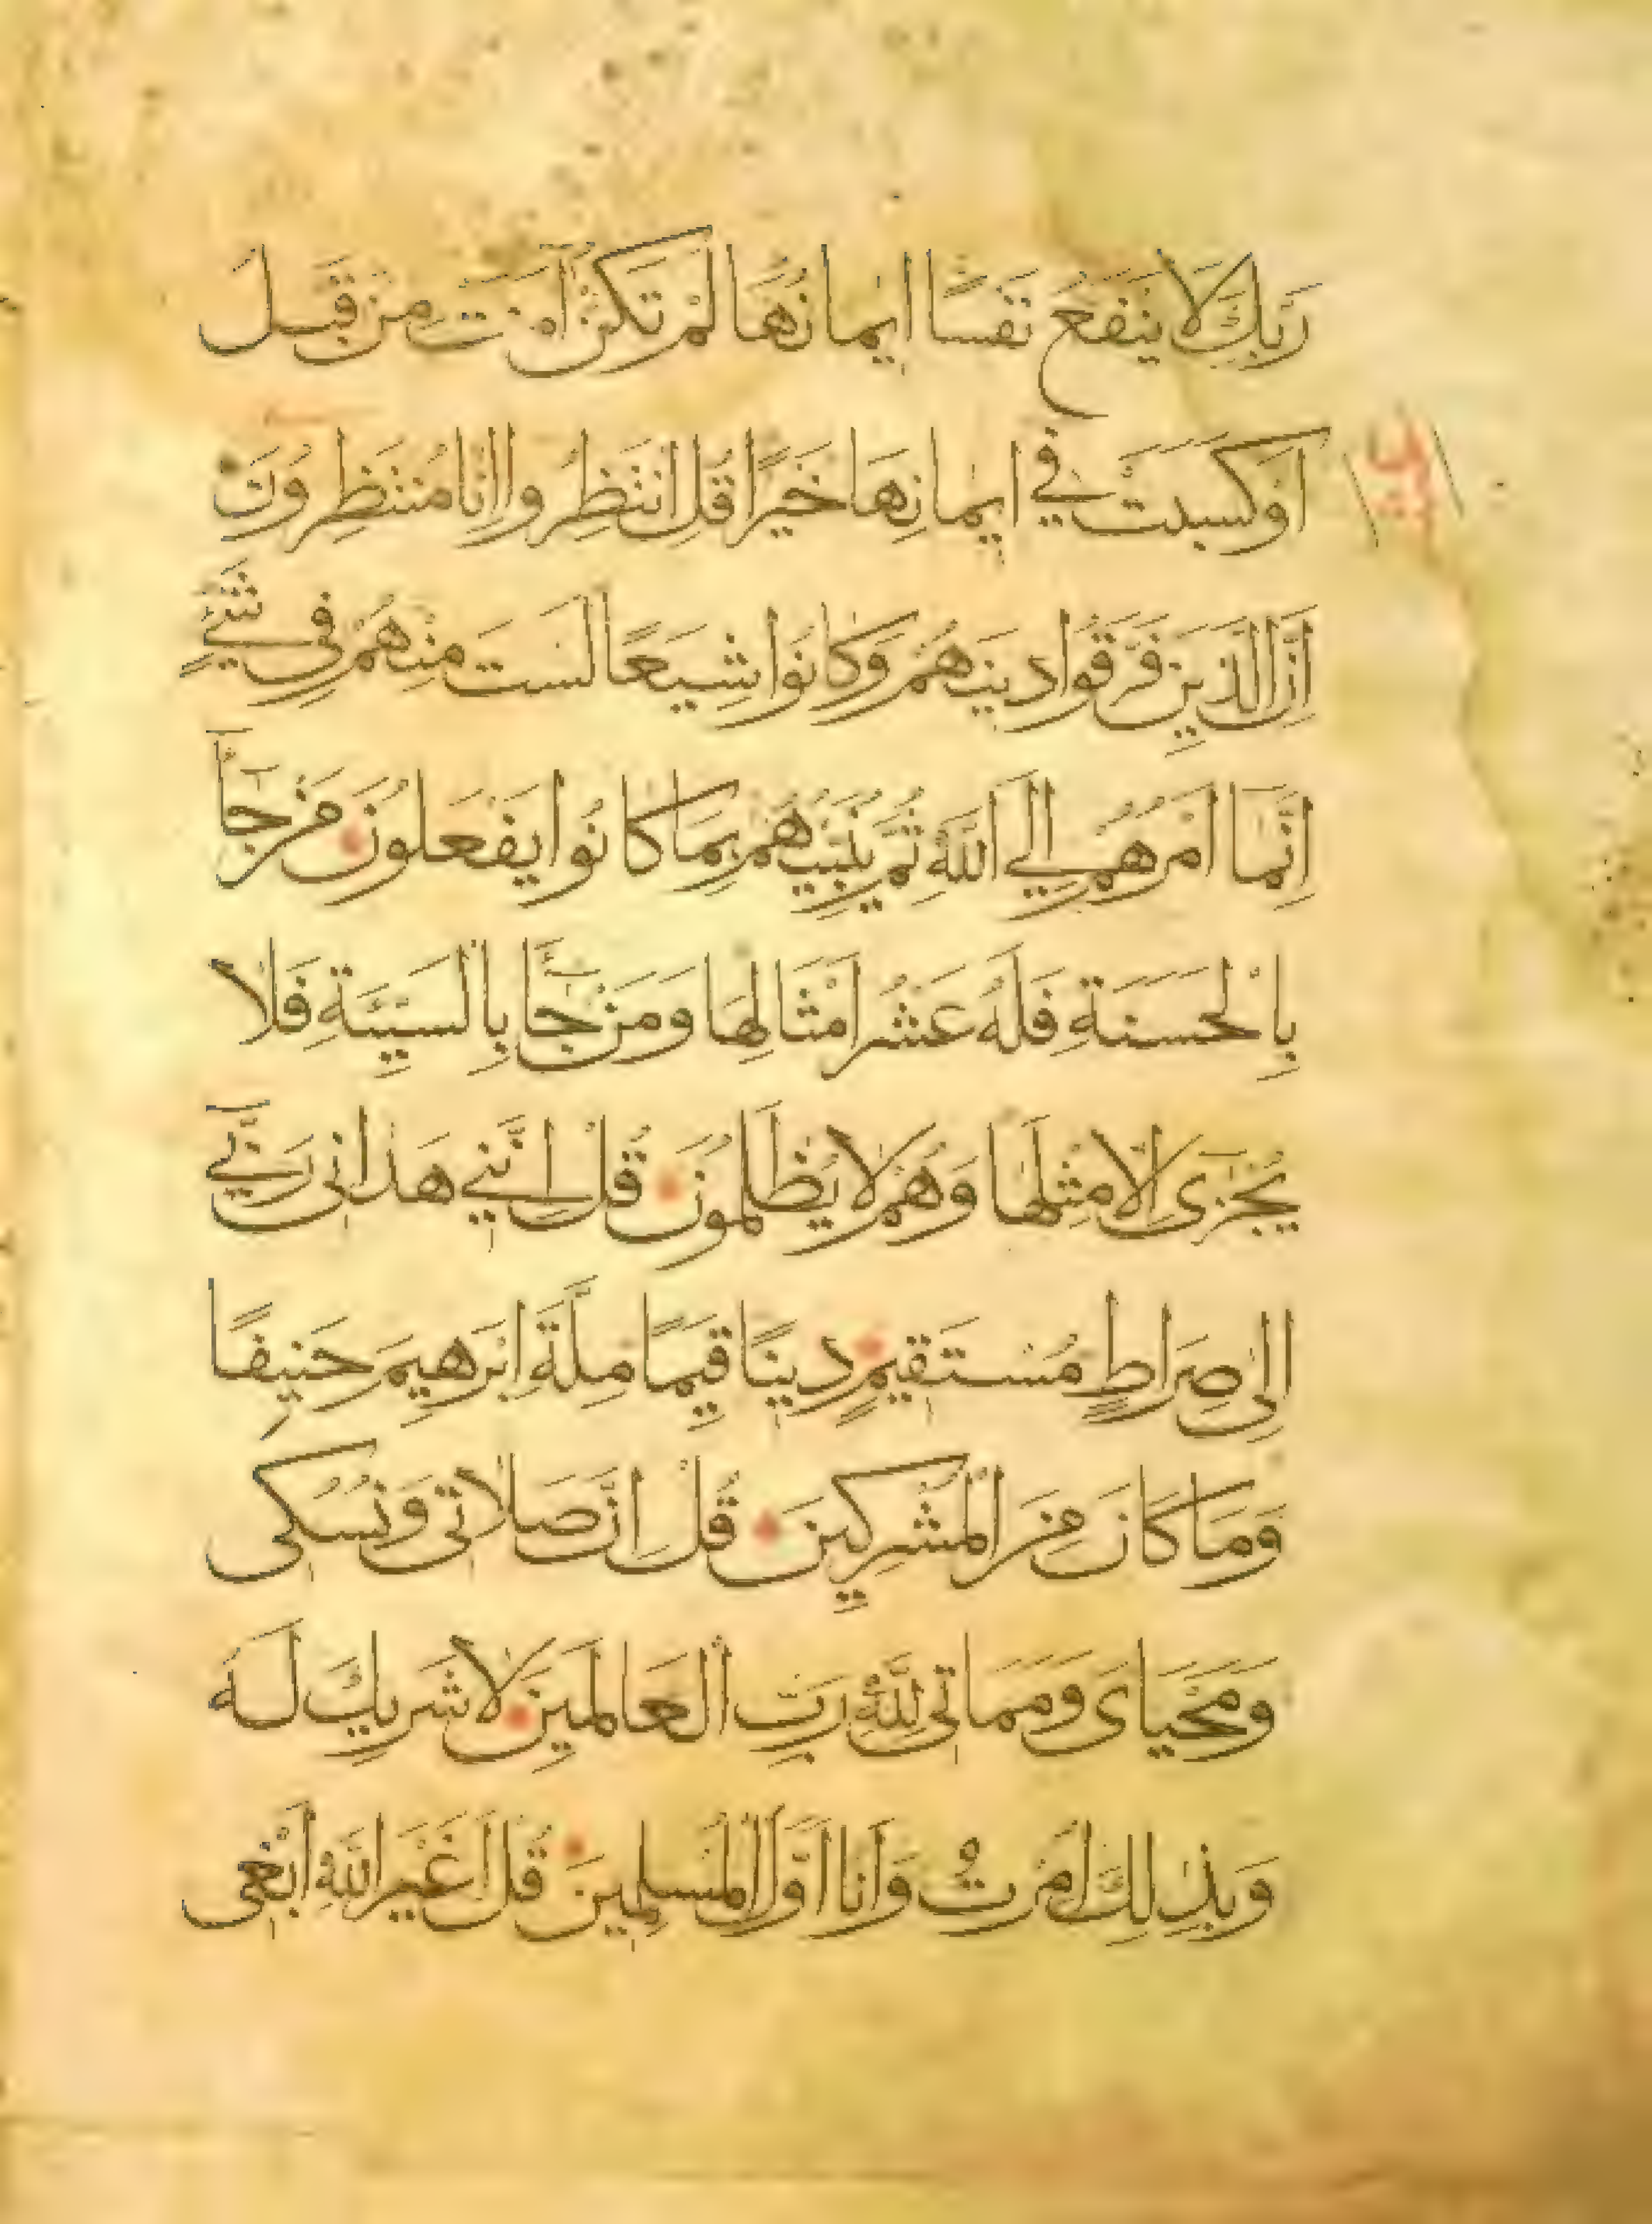 رَبِّكَ لَا يَنْفَعُ نَفْسًا اِيمَانُهَا لَمْ تَكُنْ اٰمَنَتْ مِنْ قَبْلُ
اَوْ كَسَبَتْ فِي اِيمَانِهَا خَيْرًا قُلِ انْتَظِرُوا اِنَّا مُنْتَظِرُونَ
اِنَّ الَّذِينَ فَرَّقُوا دِينَهُمْ وَكَانُوا شِيَعًا لَسْتَ مِنْهُمْ فِي شَيْءٍ
اِنَّمَا اَمْرُهُمْ اِلَي اللّٰهِ ثُمَّ يُنَبِّئُهُمْ بِمَا كَانُوا يَفْعَلُونَ مَنْ جَآءَ
بِالْحَسَنَةِ فَلَهُ عَشْرُ اَمْثَالِهَا وَمَنْ جَآءَ بِالسَّيِّئَةِ فَلَا
يُجْزٰى اِلَّا مِثْلَهَا وَهُمْ لَا يُظْلَمُونَ قُلْ اِنَّنِي هَدَانِى رَبِّي
اِلٰى صِرَاطٍ مُسْتَقِيمٍ دِينًا قِيَمًا مِلَّةَ اِبْرَهِيمَ حَنِيفًا
وَمَا كَانَ مِنَ الْمُشْرِكِينَ قُلْ اِنَّ صَلَاتِى وَنُسُكِى
وَمَحْيَاىَ وَمَمَاتِى لِلّٰهِ رَبِّ الْعَالَمِينَ لَا شَرِيكَ لَهُ
وَبِذٰلِكَ اُمِرْتُ وَاَنَا اَوَّلُ الْمُسْلِمِينَ قُلْ اَغَيْرَ اللّٰهِ اَبْغِى